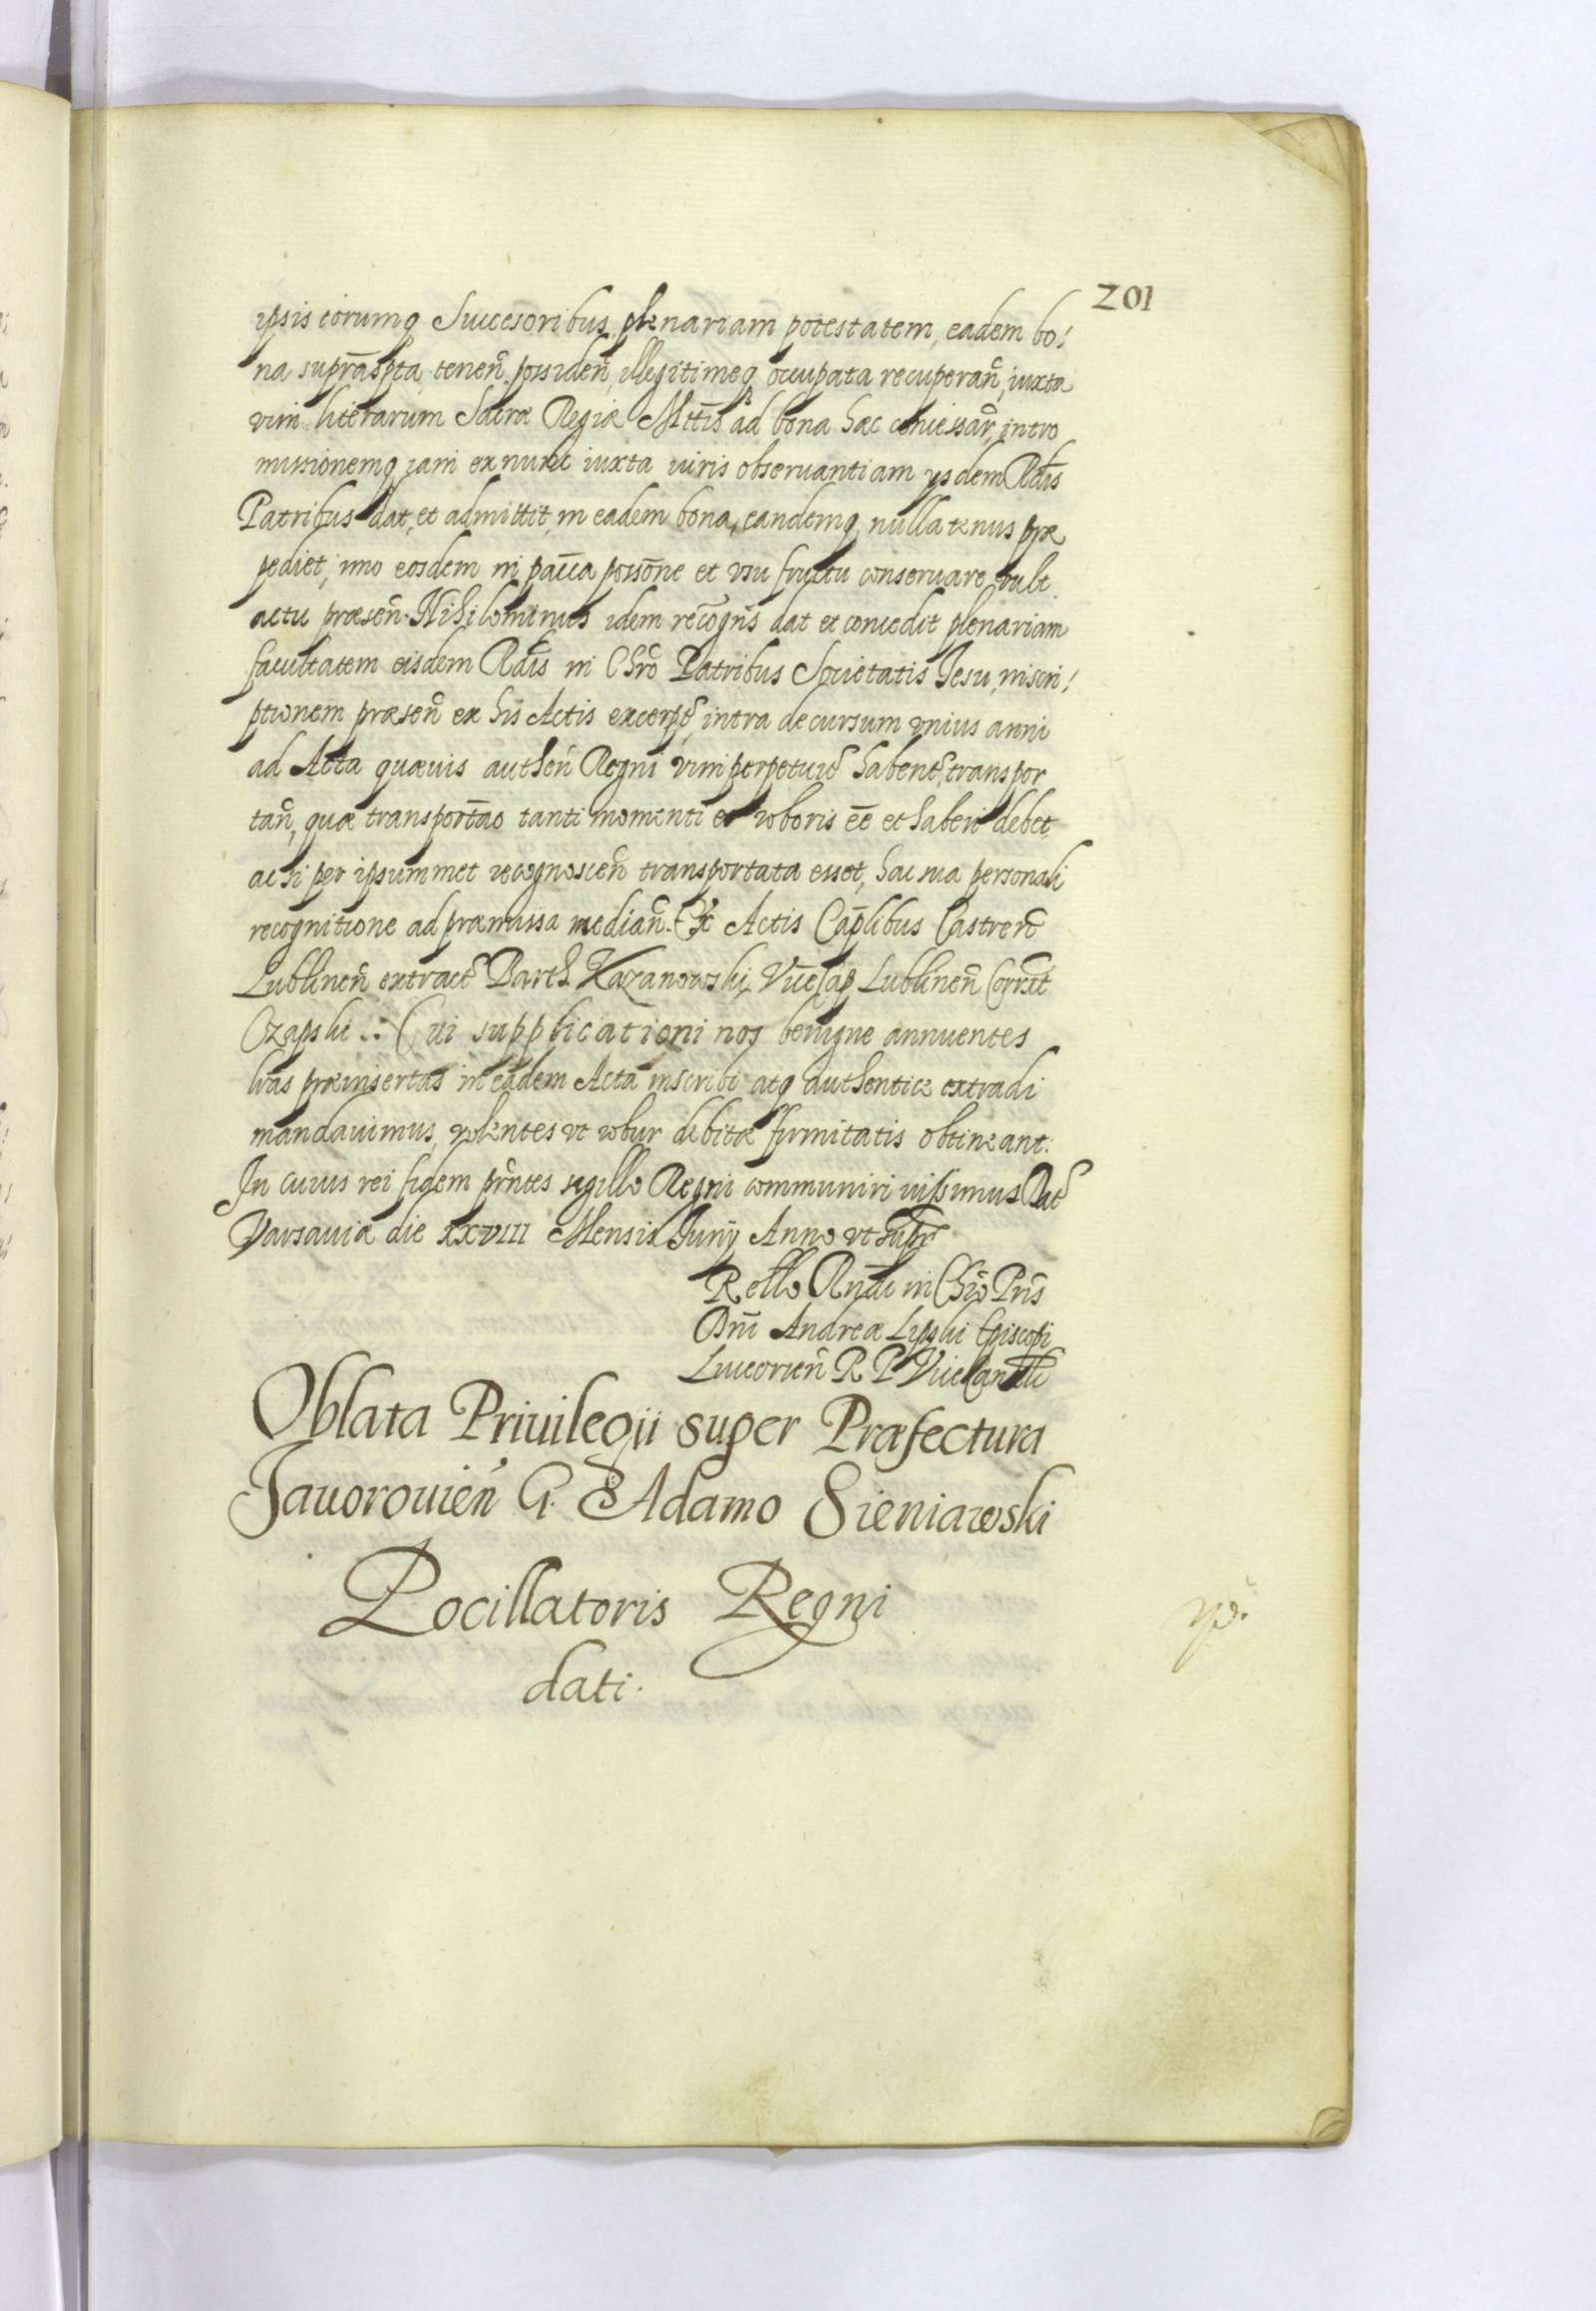 201
ipsis eorumq Successoribus plenariam potestatem, eadem bo!
na supra͞spta tenen̄ possiden̄, illegitimeq occupata recuperan̄, iuxta
vim literarum Sacræ Regiæ Mttis ad bona hæc concessar̄, intro
missionemq iam ex nunc iuxta iuris obseruantiam ysdem Rdis
Patribus dat, et admittit, in eadem bona, eandemq nullatenus præ
pediet, imo eosdem in pacca posso͞ne et vsu fructu conseruare vult
actu præsen̄. Nihilominus idem recogn̄s dat et concedit plenariam
facultatem eisdem Rdis in Chro Patribus Societatis Jesu, inscri!
ptionem præsen̄ ex his Actis excerpt, intra decursum vnius anni
ad Acta quæuis authen̄ Regni vim perpetuit habent, transpor
tan̄, quæ transporta͞o tanti momenti et roboris e͞e et haberi debet,
ac si per ipsummet recognoscen̄ transportata esset, hac sua personali
recognitione ad præmissa median̄. Ex Actis Cap̄libus Castren̄
Lublinen̄ extract Barth. Kazanowski ViceCap Lublinen̄ Corrxit
Czapski .:. Cui supplicationi nos benigne annuentes
lr̄as præinsertas in eadem Acta inscribi atq authentice extradi
mandauimus, volentes vt robur debitæ firmitatis obtineant.
In cuius rei fidem pr̄ntes sigillo Regni communiri iussimus Dat
Varsauiæ die XXVIII Mensis Junij Anno vt supr
R ello Rndi in Chro Pris
Dn̄i Andreæ Lipski Episcopi
Luceorien̄ R P ViceCancelli
Oblata Priuilegii super Præfectura
Jauorouien̄ G. Adamo Sieniawski
Pocillatoris Regni
dati.